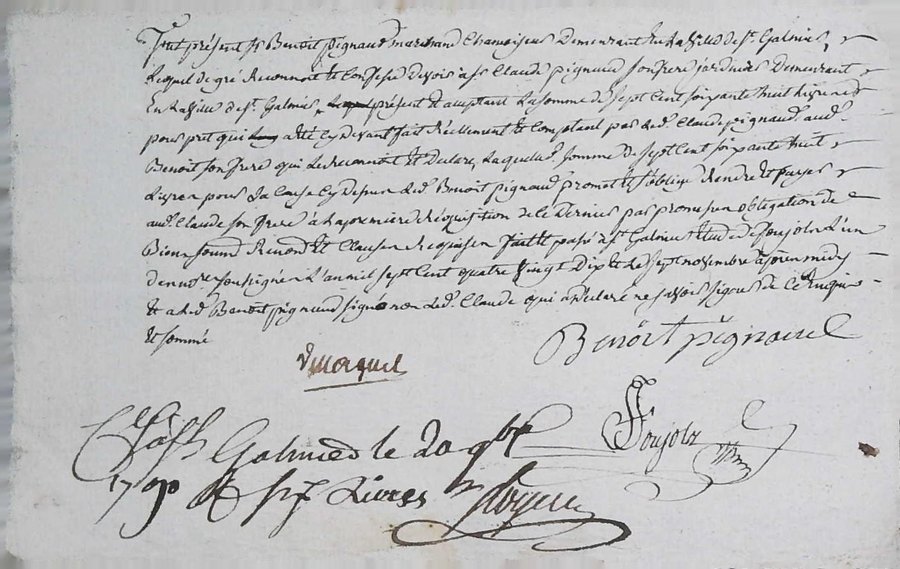 fut présent Sr Benoit pignaud marchand Chamoiseur Demeurant En la ville de St. Galmier,
Lequel de gré Reconnoit et Confesse devoir a sr Claude pignaud son frere jardinier Demeurant
En la ville de St. Galmier, présent et acceptant La somme de sept Cent soixante huit Livres
pour prêt qui a été Cy devant fait Réellement et Comptant par led. Claude pignaud aud.
Benoit son frere qui Le Reconnoit et Declare, Laquelle somme de sept Cent soixante huit
Livres pour La Cause Cy dessus led. Benoit pignaud promet et s'oblige Rendre et payer
aud. Claude son frere à La premiere Requisition de Ce Dernier par promesses obligation de
Biens soumis Renonc et Clauses Requises fait et passé a St. Galmier Etude de foujols L'un
de nores soussignés L'an mil sept Cent quatre vingt Dix et le sept novembre après midy
et a led. Benoit pignaud signé non led. Claude qui a Declaré ne savoir signer de Ce Enquis
et sommé
Benoit pignaud
foujols
Galmier le 20 9bre
1790 Livres